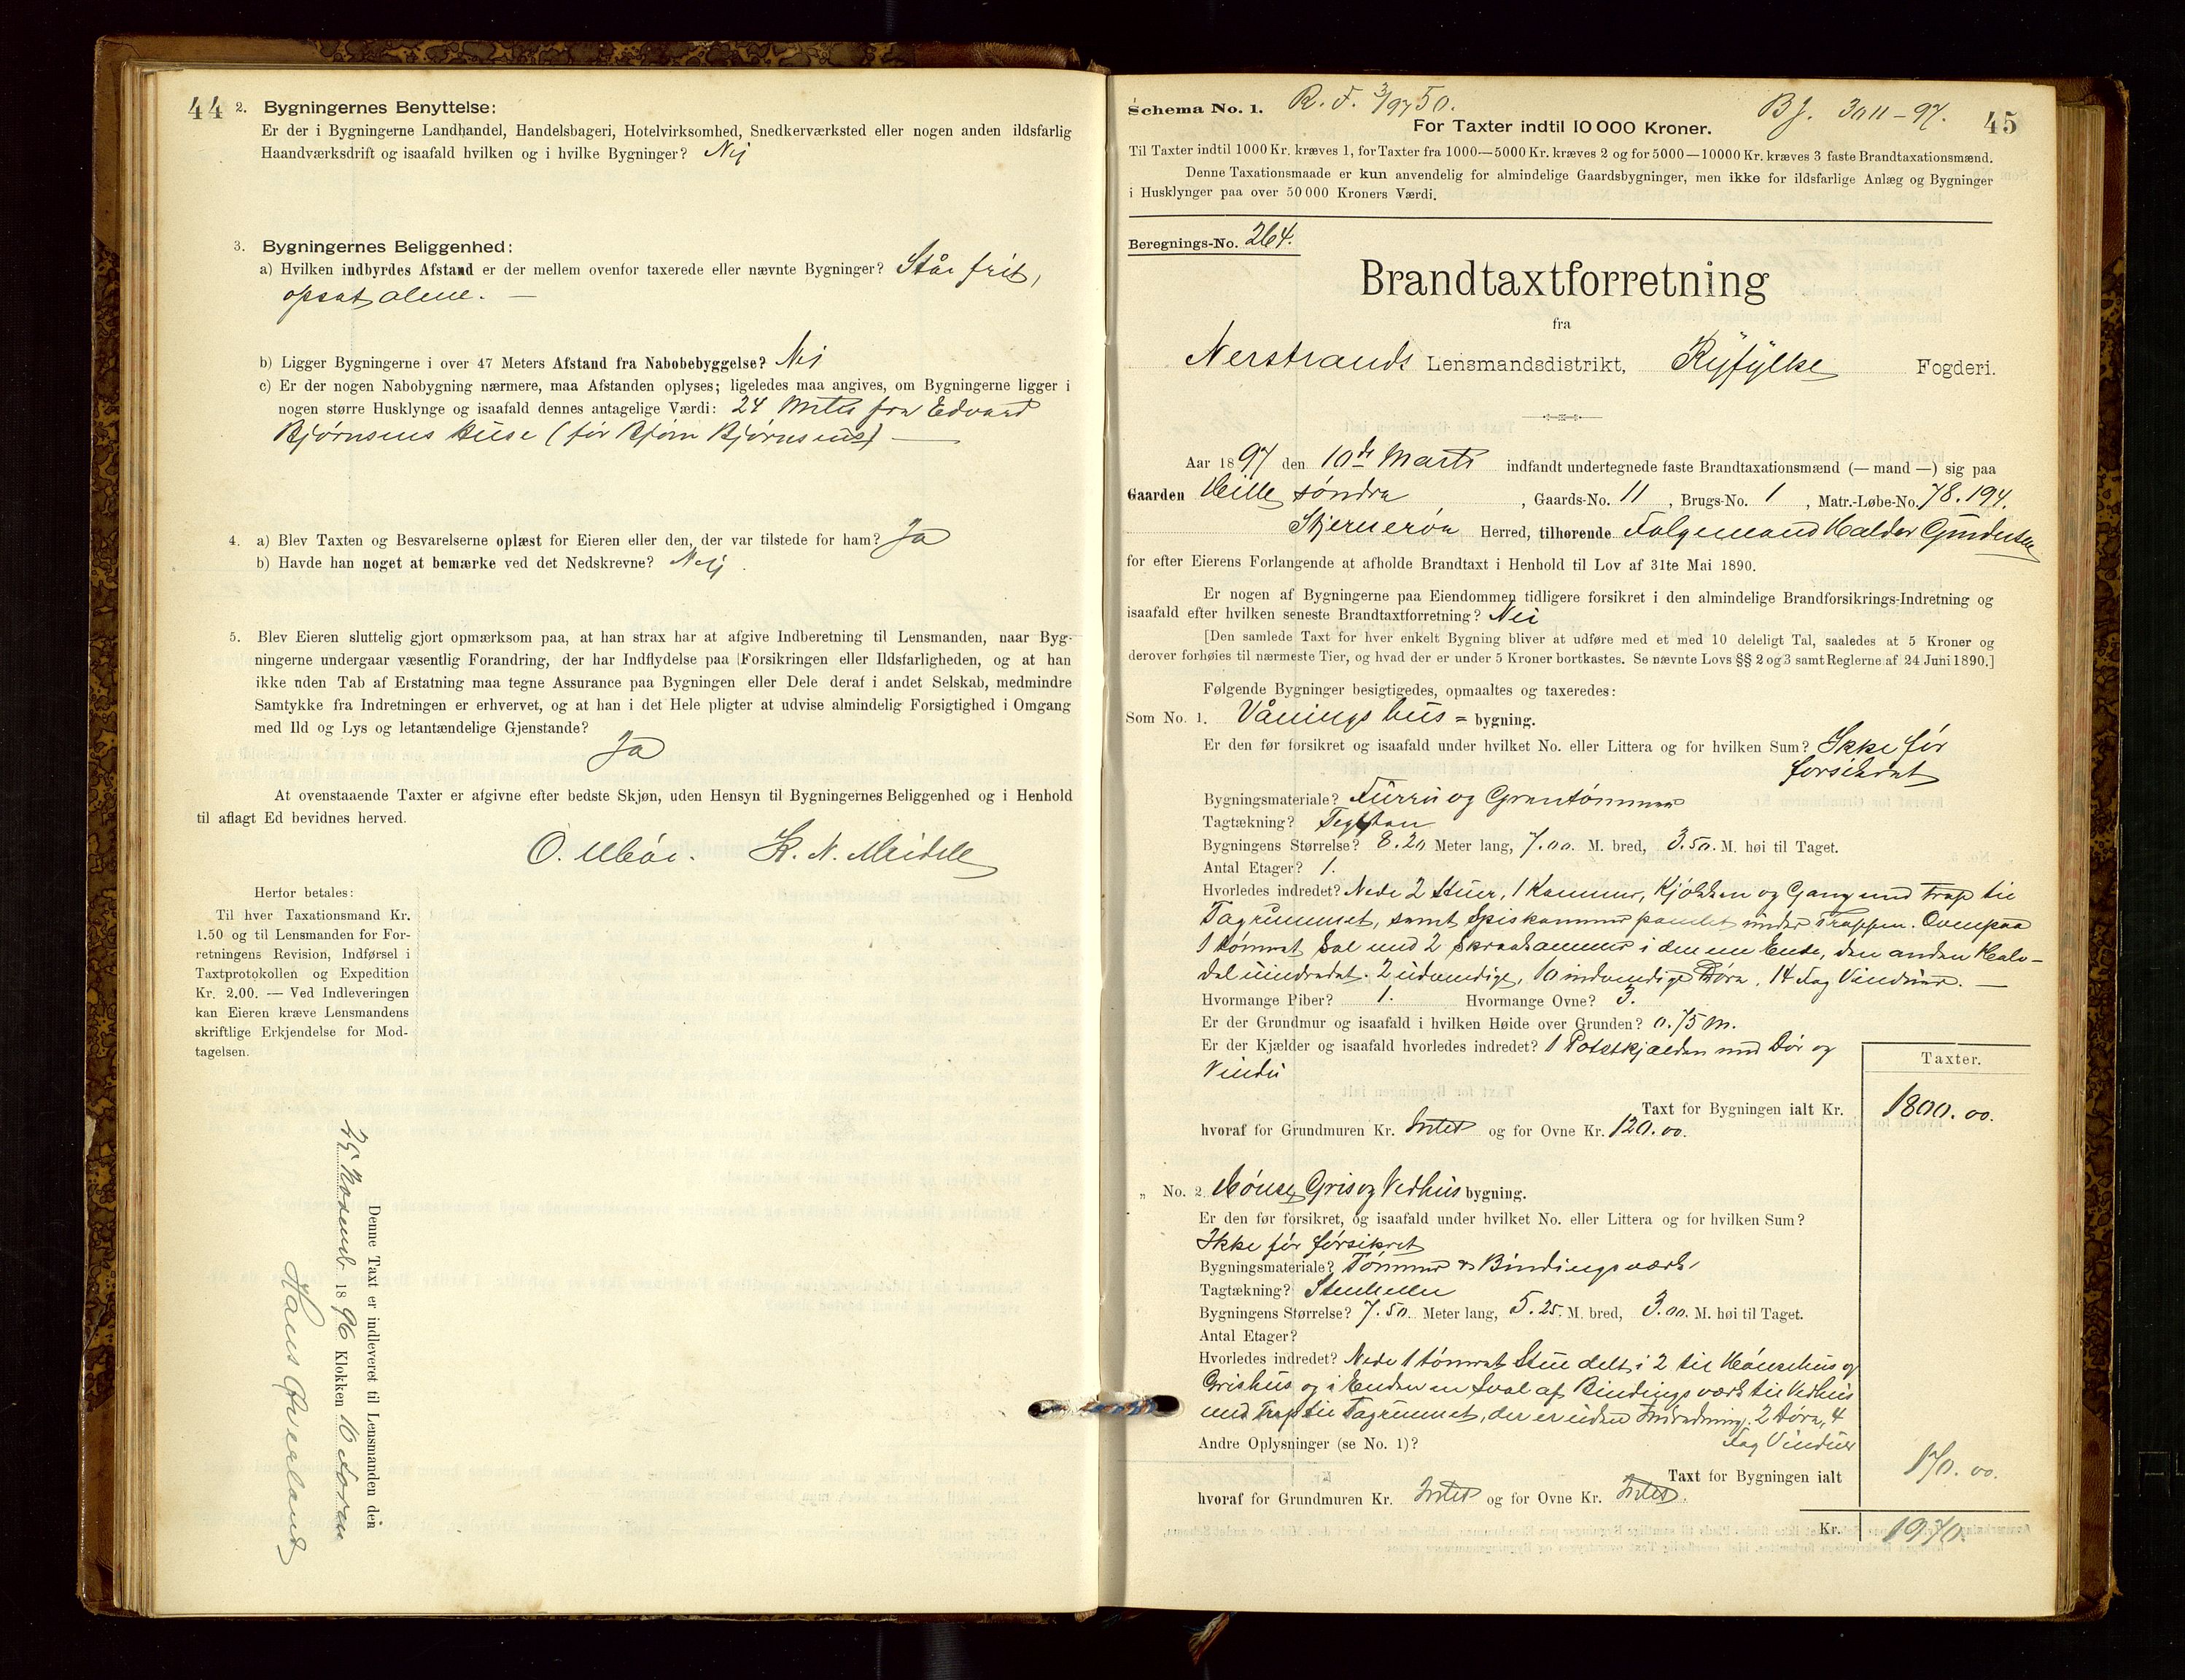 44
2. Bygningernes Benyttelse:
Er der i Bygningerne Landhandel, Handelsbageri, Hotelvirksomhed, Snedkerværksted eller nogen anden ildsfarlig
Haandværksdrift og isaafald hvilken og i hvilke Bygninger? Nei
3. Bygningernes Beliggenhed:
a) Hvilken indbyrdes Afstand er der mellem ovenfor taxerede eller nævnte Bygninger? Står frit,
opsat alene. —
b) Ligger Bygningerne i over 47 Meters Afstand fra Nabobebyggelse? Nei
c) Er der nogen Nabobygning nærmere, maa Afstanden oplyses; ligeledes maa angives, om Bygningerne ligger i
nogen større Husklynge og isaafald dennes antagelige Værdi: 24 Meter fra Edvard
Bjørnsens Huse (før Bjørn Bjørnsens) —
4. a) Blev Taxten og Besvarelserne oplæst for Eieren eller den, der var tilstede for ham? Ja
b) Havde han noget at bemærke ved det Nedskrevne? Nej.
5. Blev Eieren sluttelig gjort opmærksom paa, at han strax har at afgive Indberetning til Lensmanden, naar Byg-
ningerne undergaar væsentlig Forandring, der har Indflydelse paa Forsikringen eller Ildsfarligheden, og at han
ikke uden Tab af Erstatning maa tegne Assurance paa Bygningen eller Dele deraf i andet Selskab, medmindre
Samtykke fra Indretningen er erhvervet, og at han i det Hele pligter at udvise almindelig Forsigtighed i Omgang
med Ild og Lys og letantændelige Gjenstande?
Ja
At ovenstaaende Taxter er afgivne efter bedste Skjøn, uden Hensyn til Bygningernes Beliggenhed og i Henhold
til aflagt Ed bevidnes herved.
K. N. Meidell
Herfor betales:
Til hver Taxationsmand Kr.
1.50 og til Lensmanden for For-
retningens Revision, Indførsel i
Taxtprotokollen og Expedition
Kr. 2.00. — Ved Indleveringen
kan Eieren kræve Lensmandens
skriftlige Erkjendelse for Mod-
tagelsen.
Denne Taxt er indleveret til Lensmanden den
25 Novemb. 1896 Klokken 10 Form
Hans Qvarland
Schema No. 1. R. F. 3/97 50. Bj. 30 11 - 97. 45
For Taxter indtil 10 000 Kroner.
Til Taxter indtil 1000 Kr. kræves 1, for Taxter fra 1000—5000 Kr. kræves 2 og for 5000—10000 Kr. kræves 3 faste Brandtaxationsmænd.
Denne Taxationsmaade er kun anvendelig for almindelige Gaardsbygninger, men ikke for ildsfarlige Anlæg og Bygninger
i Husklynger paa over 50 000 Kroners Værdi.
Beregnings-No. 264.
Brandtaxtforretning
fra
Nerstrands Lensmandsdistrikt, Ryfylke Fogderi.
Aar 1897 den 10de Marts indfandt undertegnede faste Brandtaxationsmænd (— mand —) sig paa
Gaarden Helle søndra, Gaards-No. 11, Brugs-No. 1, Matr.-Løbe-No. 78. 194.
Stjernerøa Herred, tilhørende Folgemand Haldor Gundersen
for efter Eierens Forlangende at afholde Brandtaxt i Henhold til Lov af 31te Mai 1890.
Er nogen af Bygningerne paa Eiendommen tidligere forsikret i den almindelige Brandforsikrings-Indretning og
isaafald efter hvilken seneste Brandtaxtforretning? Nei
[Den samlede Taxt for hver enkelt Bygning bliver at udføre med et med 10 deleligt Tal, saaledes at 5 Kroner og
derover forhøies til nærmeste Tier, og hvad der er under 5 Kroner bortkastes. Se nævnte Lovs §§ 2 og 3 samt Reglerne af 24 Juni 1890.]
Følgende Bygninger besigtigedes, opmaaltes og taxeredes:
Som No. 1. Våningshus = bygning.
Er den før forsikret og isaafald under hvilket No. eller Littera og for hvilken Sum? Ikke før
forsikret
Bygningsmateriale? Furru og Grantømmer
Tagtækning? Teglsten
Bygningens Størrelse? 8.20 Meter lang, 7.00. M. bred, 3.50. M. høi til Taget.
Antal Etager? 1.
Hvorledes indredet? Nede 2 Stuer, 1 Kammer, Kjøkken og Gang med Trap til
Tagrummet, samt Spiskammer panelet under Trappen. Ovenpaa
1 tømret Sal med 2 Skraakammer i den ene Ende, den anden Halv-
del uindredet. 2 udvendige, 10 indvendige Døra, 14 Fag Vinduer. —
Hvormange Piber? 1. Hvormange Ovne? 3.
Er der Grundmur og isaafald i hvilken Høide over Grunden? 0.75 M.
Er der Kjælder og isaafald hvorledes indredet? 1 Potetkjælder med Dør og
Vindu
Taxter.
Taxt for Bygningen ialt Kr. 1800.00.
hvoraf for Grundmuren Kr. Intet og for Ovne Kr. 120.00.
„ No. 2 Hønse, Gris og Vedhus bygning.
Er den før forsikret, og isaafald under hvilket No. eller Littera og for hvilken Sum?
Ikke før forsikret
Bygningsmateriale? Tømmer & Bindingsværk
Tagtækning? Stenheller
Bygningens Størrelse? 7.50. Meter lang, 5.25. M. bred, 3.00. M. høi til Taget.
Antal Etager?
Hvorledes indredet? Nede 1 tømret Stue delt i 2 til Hønsehus og
Grishus og i Enden en Sval af Bindingsværk til Vedhus
med Trap til Tagrummet, der er uden Indredning. 2 Døra, 4
Fag Vinduer
Andre Oplysninger (se No. 1)?
Taxt for Bygningen ialt 170.00.
hvoraf for Grundmuren Kr. Intet og for Ovne Kr. Intet.
Kr. 1970.